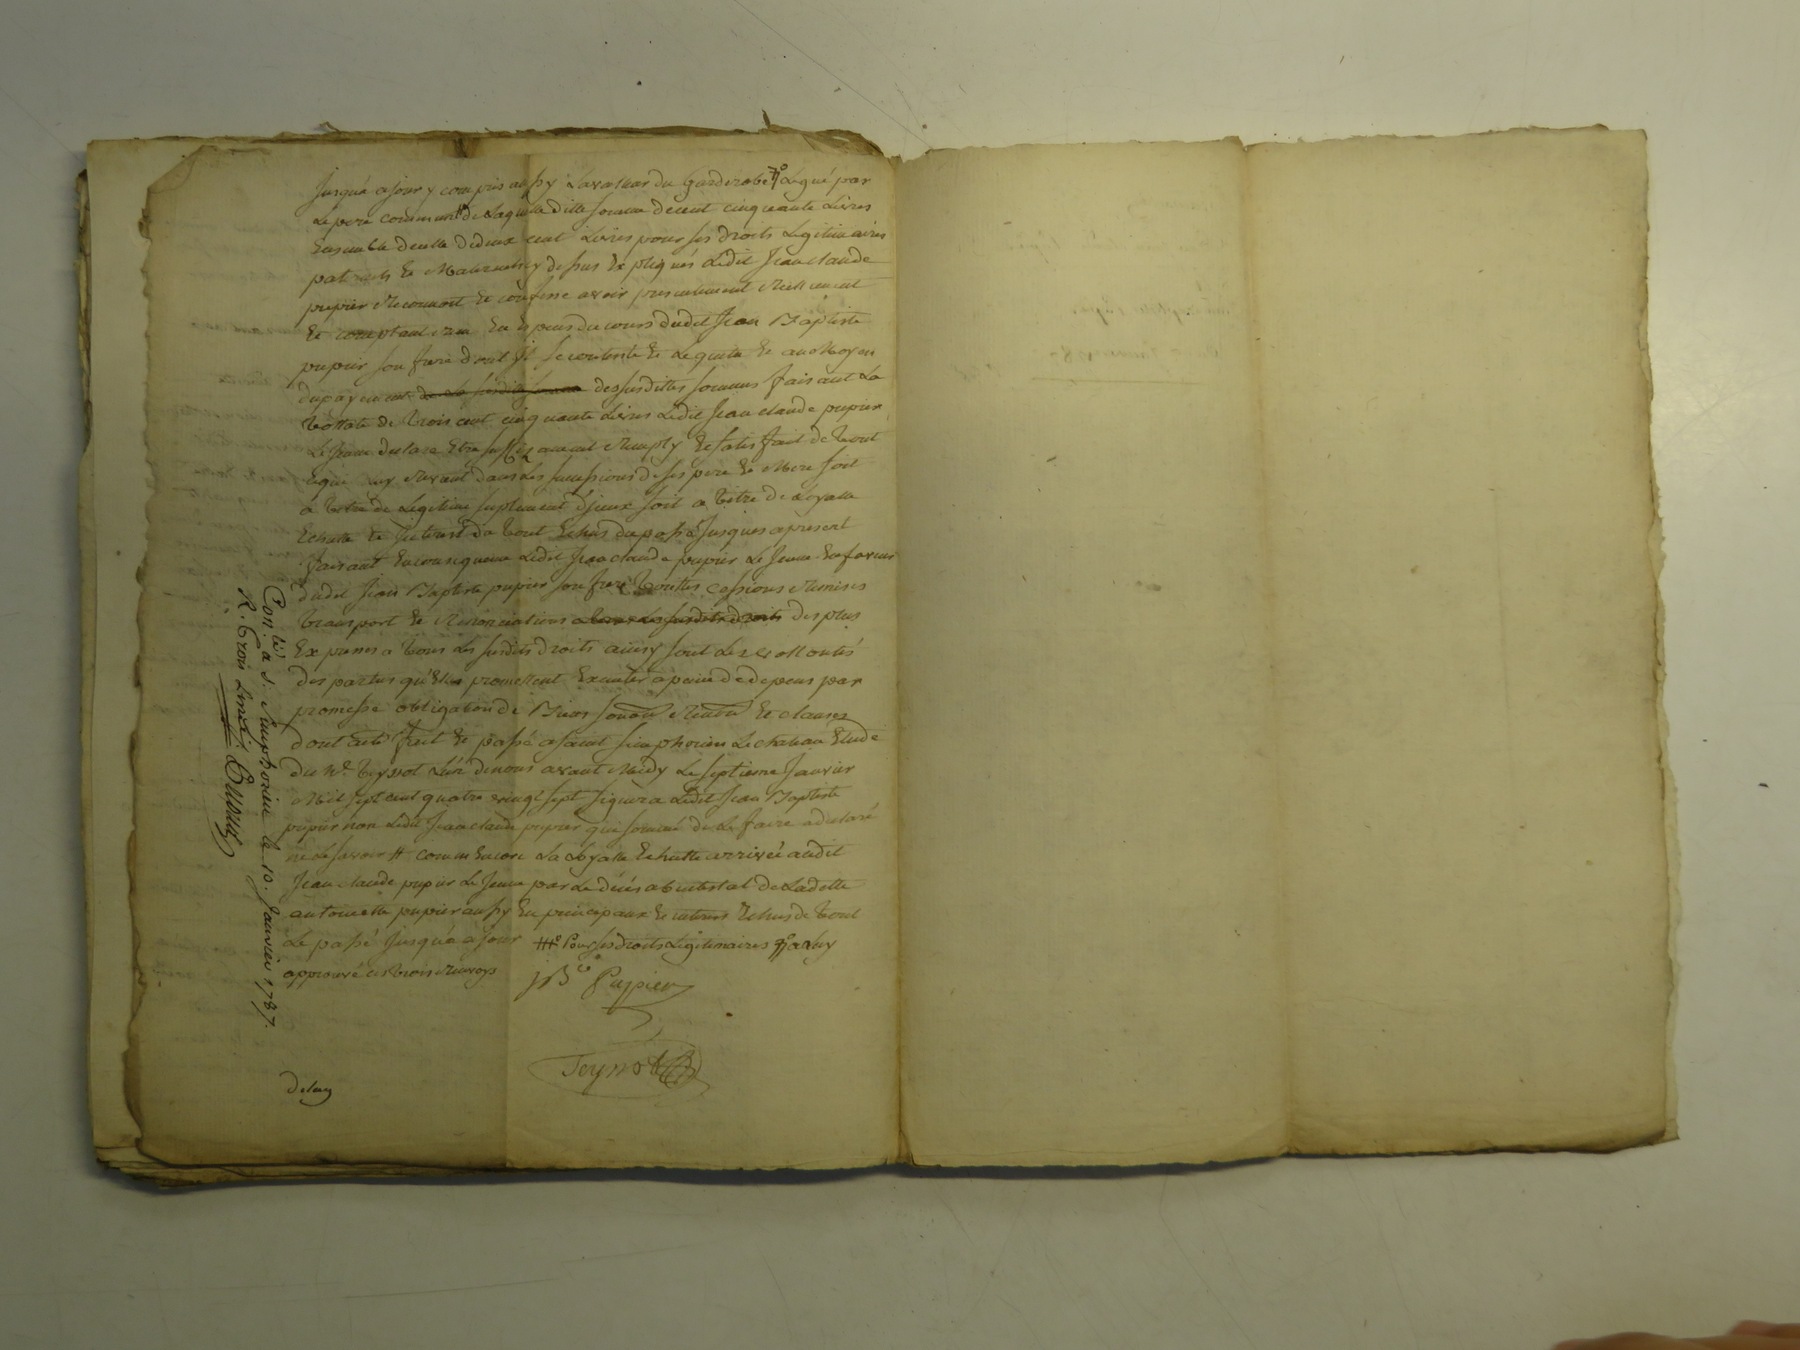 Jusqu'a ajour y compris aussy Lavalleur du Garderobe #° Legué par
Le pere commun # de Laquelle ditte somme decent cinqueante Livres
Ensemble decelle dedeux cent Livres pour ses droits Legitimaires
paternels Et Maternels cy dessus Expliqués Ledit Jean claude
pupier Reconnoit Et confesse avoir presentement Reellement
Et comptant reçu En Especes du cours dudit Jean Baptiste
pupier son frere dont il se contente Et Le quitte Et au Moyen
dupayement de La susditte somme des susdittes sommes faisant La
Tottale de Trois cent cinquante Livres Ledit Jean claude pupier
Le Jeune declare Etre suffisament Remply Et satisfait de Tout
cequi luy Revient dans Les successions de ses pere Et Mere soit
a Titre de Legitime suplement d'jceux soit a Titre de Loyalle
Echutte Et Interest du Tout Echus du passé Jusques apresent
faisant Enconsequence Ledit Jean claude pupier Le Jeune En faveur
dudit Jean Baptiste pupier son frere Touttes cessions Remises
Transport Et Renonciations a tous Les susdits droits des plus
Expresses a Tous Les susdits droits ainsy sont Les vollontés
des parties qu'Elles promettent Executer apeine de depens par
promesse obligation de Biens soumons Renons Et clauses
dont acte fait Et passé a saint simphorien Le chateau Etude
du Ne. Teyssot L'un denous avant Midy Le septieme Janvier
Mil sept cent quatre vingt sept signera Ledit Jean Baptiste
pupier non Ledit Jean claude pupier qui sommé de Le faire adeclaré
ne Le savoir # comm Encore La Loyalle Echutte arrivée audit
Jean claude pupier Le Jeune par Le décés abintestat de Ladette
antoinette pupier aussy En principaux Et interets Echus de Tout
Le passé Jusqu'a ajour ##° Pour ses droits Legitimaires #° a Luy
approuvé ces trois Renvoys
jnBte Pupier
Teynot
delay
Con. lé a S. Simphorien le 10. Janvier 1787.
R. trois Livres